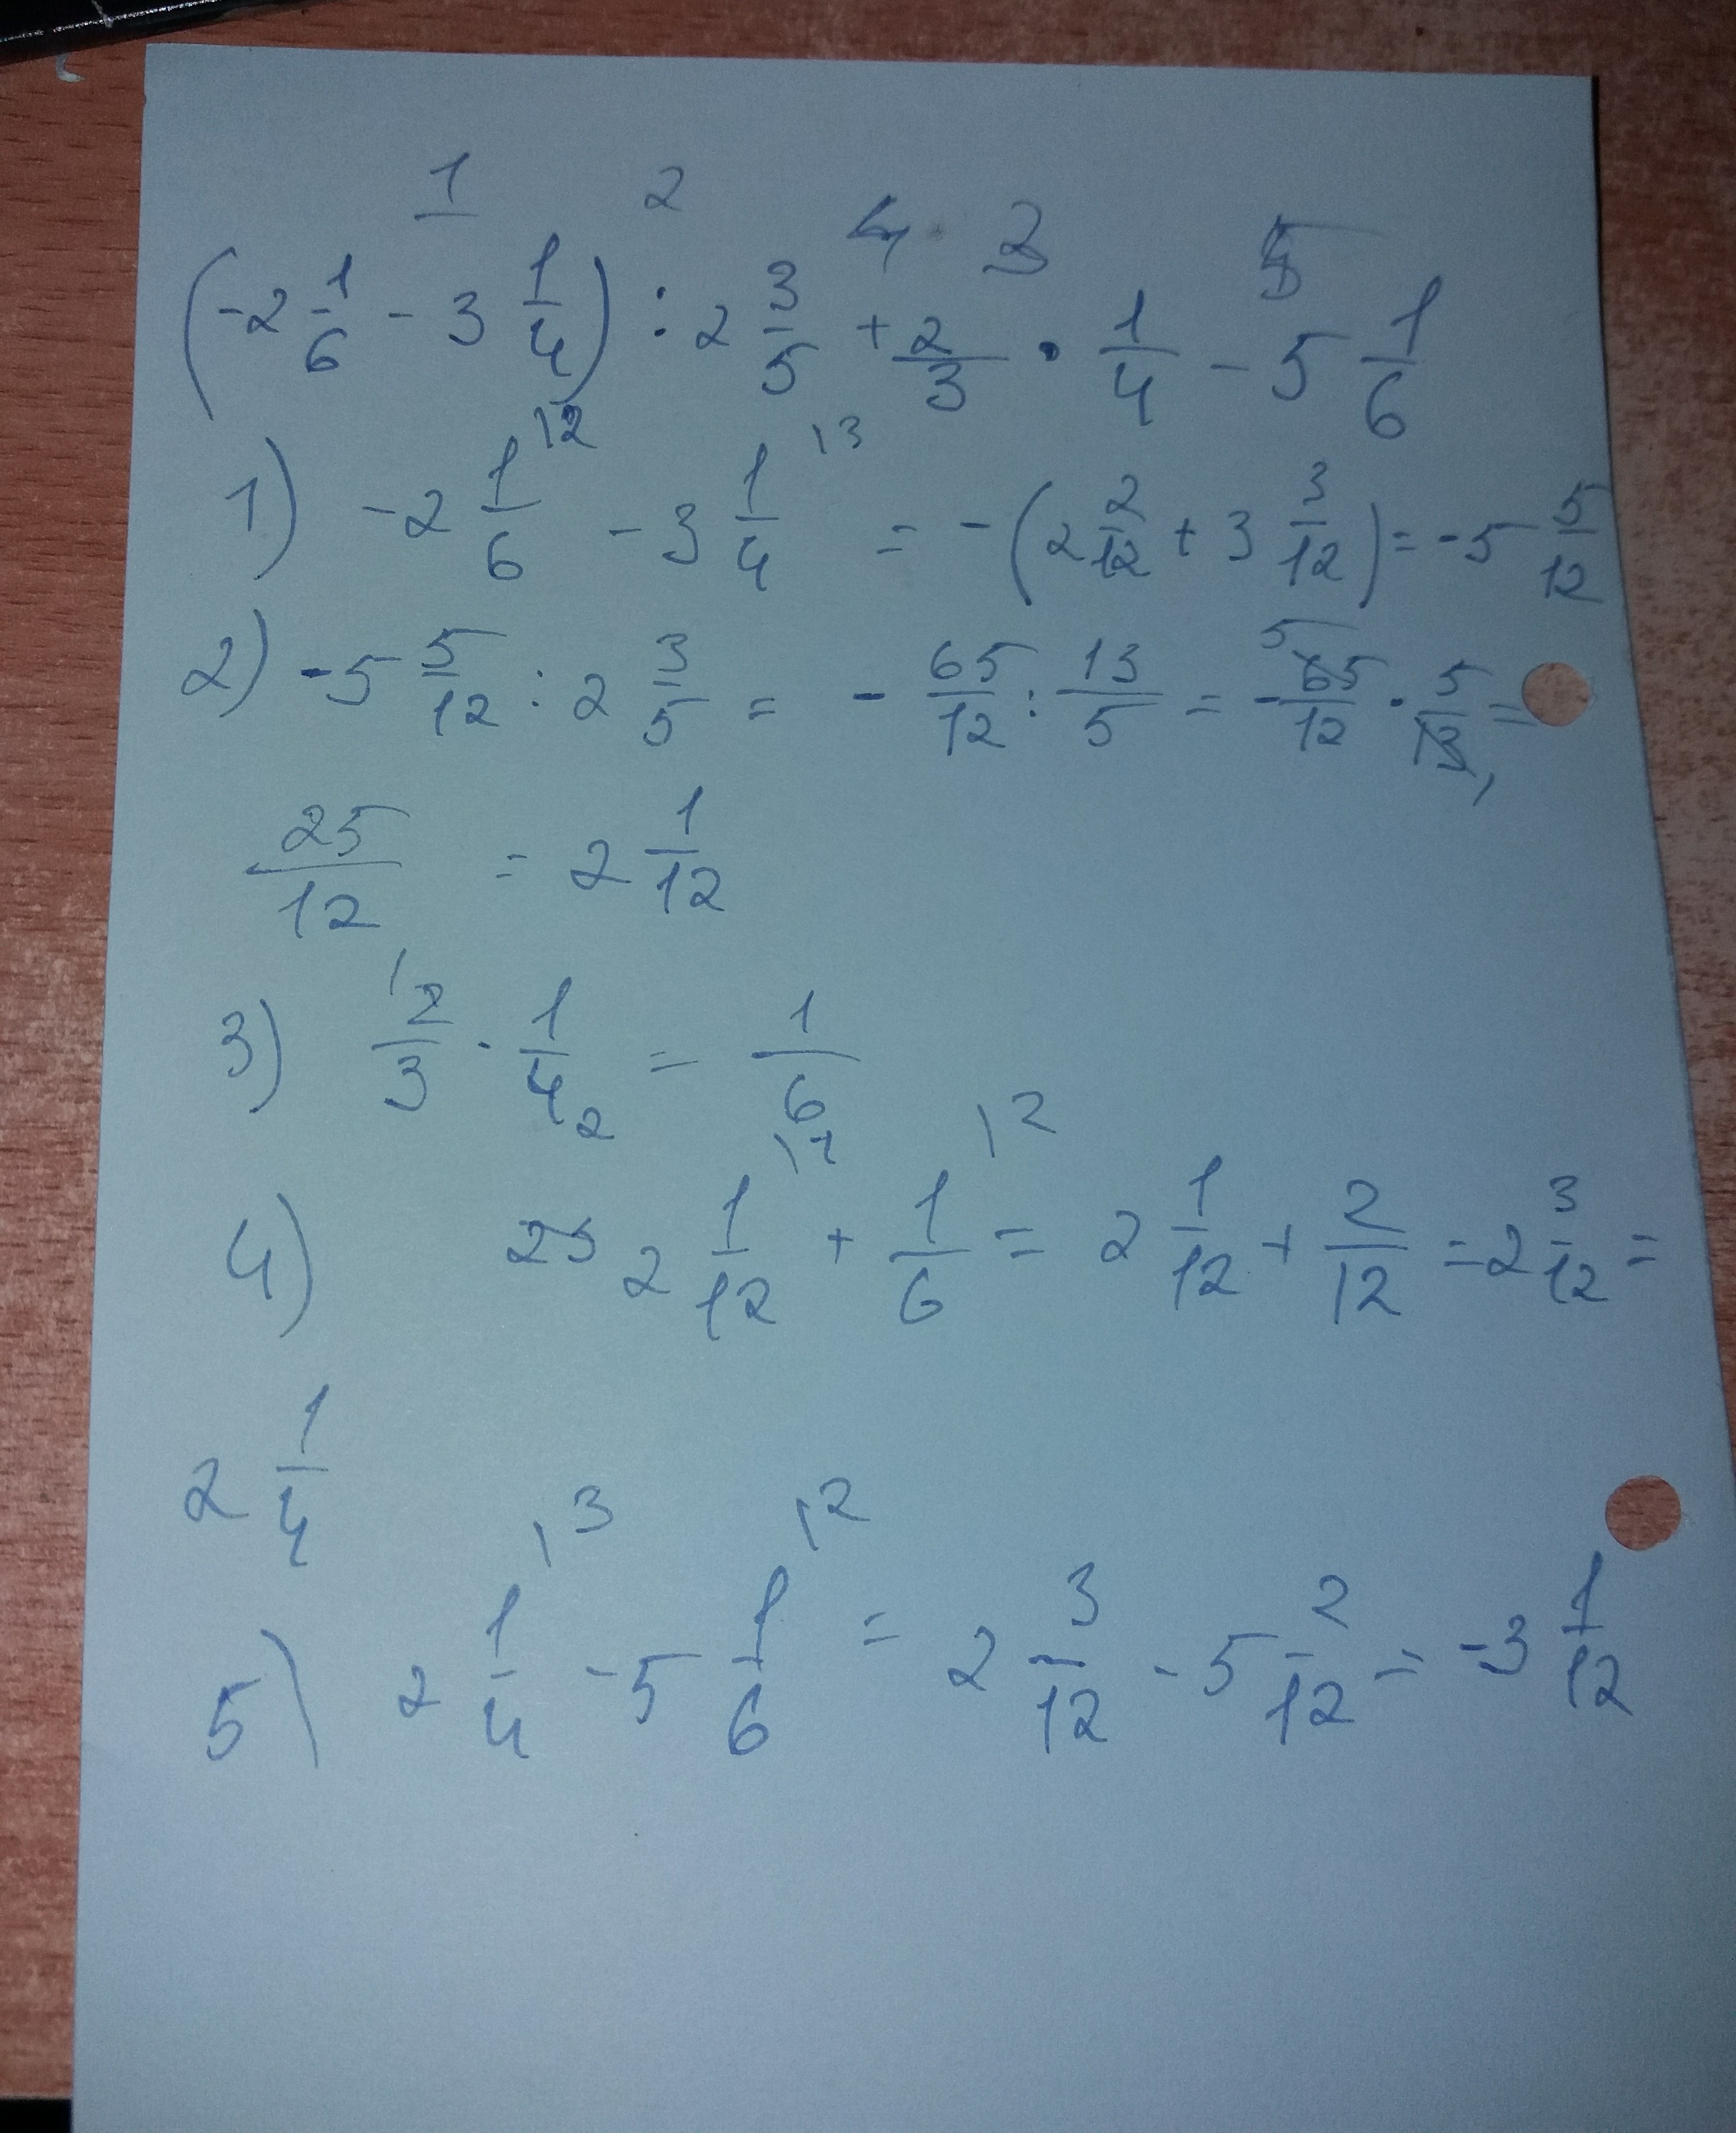 1 2 4 3 5
(-2 1/6 - 3 1/4) : 2 3/5 + 2/3 · 1/4 - 5 1/6
1) -2 1/6 \2 - 3 1/4 \3 = -(2 2/12 + 3 3/12) = -5 5/12
2) -5 5/12 : 2 3/5 = - 65/12 : 13/5 = - 65/12 · 5/13 =
25/12 = 2 1/12
3) 2/3 · 1/4 = 1/6
4) 2 1/12 \1 + 1/6 \2 = 2 1/12 + 2/12 = 2 3/12 =
2 1/4
5) 2 1/4 \3 - 5 1/6 \2 = 2 3/12 - 5 2/12 = -3 1/12